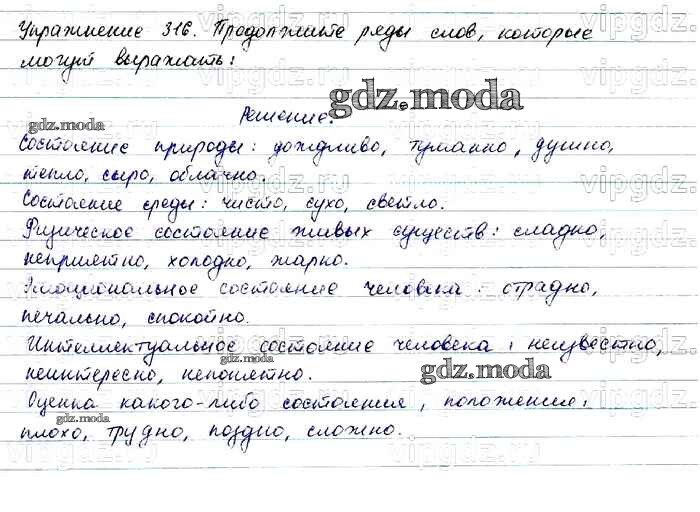 Упражнение 316. Продолжите ряды слов, которые
могут выражать:
gdz.moda
Решение.
gdz.moda
Состояние природы: дождливо, туманно, душно,
тепло, сыро, облачно.
Состояние среды: чисто, сухо, светло.
Физическое состояние живых существ: сладно,
неприятно, холодно, жарко.
Эмоциональное состояние человека: отрадно,
печально, спокойно.
Интеллектуальное состояние человека: неизвестно,
gdz.moda
неинтересно, непонятно.
gdz.moda
Оценка какого-либо состояния, положения:
gdz.moda
плохо, трудно, поздно, сложно.
vipgdz.ru